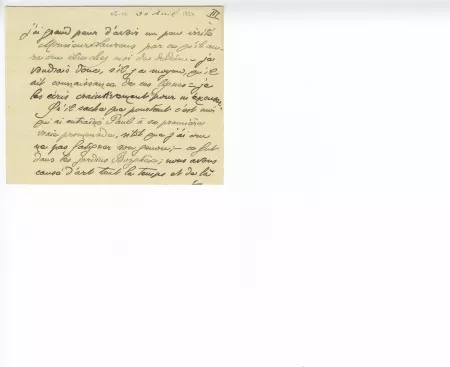 30 Avril III
j'ai grand peur d'avoir un peu irrité
Monsieur par ce qu'il
chez moi du dédain - je
voudrais donc, s'il y a moyen, qu'il
ait connaissance de ces lignes - je
les écris craintivement pour m'excuser
Qu'il sache que pourtant c'est moi
qui ai entraîné Paul à sa première
vraie promenade, sitôt que j'ai
ne pas fatiguer son genou; - ce fut
dans les jardins Borghèse; nous avons
causé d'art tout le temps et de là